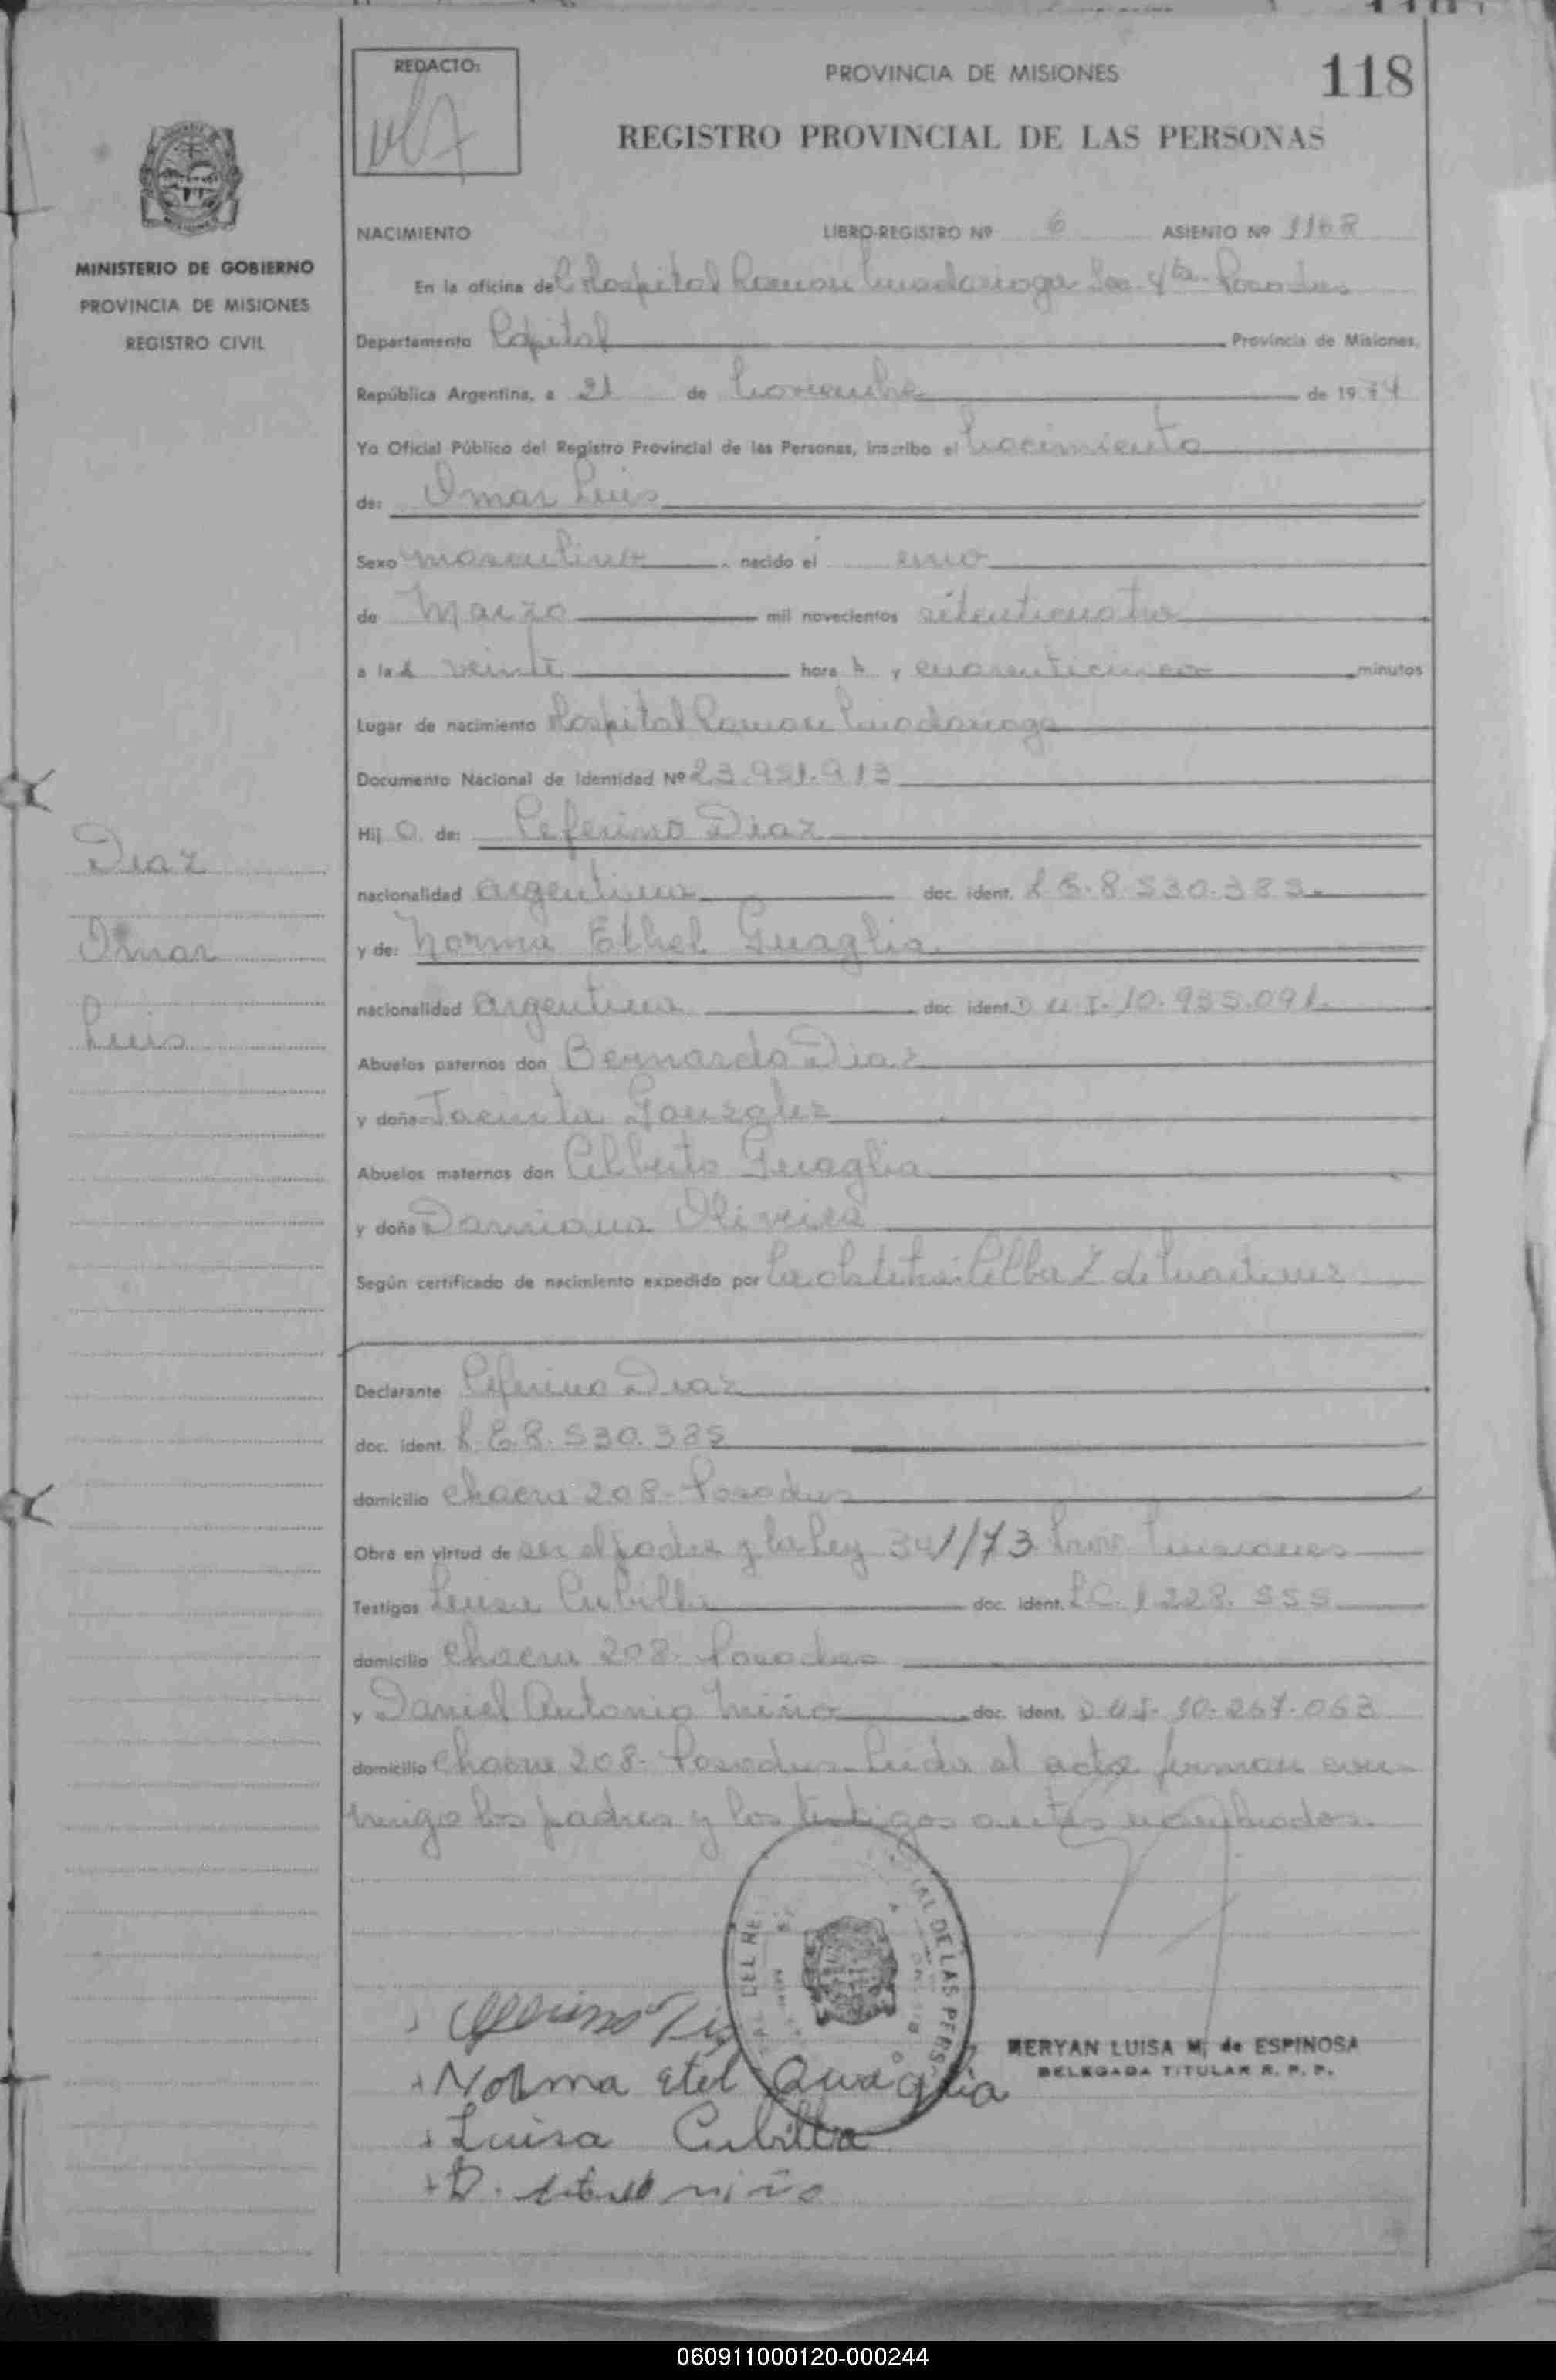 REDACTO:
PROVINCIA DE MISIONES
118
REGISTRO PROVINCIAL DE LAS PERSONAS
MINISTERIO DE GOBIERNO
PROVINCIA DE MISIONES
REGISTRO CIVIL
NACIMIENTO LIBRO-REGISTRO Nº 6 ASIENTO Nº 1168
En la oficina del Hospital Ramon Madariaga Sec. 4ta. Posadas
Departamento Capital Provincia de Misiones,
República Argentina, a 21 de Noviembre de 1974
Yo Oficial Público del Registro Provincial de las Personas, inscribo el Nacimiento
de: Omar Luis
Sexo masculino nacido el uno
de Marzo mil novecientos setenticuatro
a las veinte horas y cuarenticinco minutos
Lugar de nacimiento Hospital Ramon Madariaga
Documento Nacional de Identidad Nº 23.951.913
Hijo de: Ceferino Diaz
nacionalidad argentina doc. ident. L E. 8.530.385.
y de: Norma Ethel Guaglia
nacionalidad argentina doc. ident. D N I. 10.935.091.
Abuelos paternos don Bernardo Diaz
y doña Jacinta Gonzalez
Abuelos maternos don Alberto Guaglia
y doña Damiana Oliveira
Según certificado de nacimiento expedido por La obstetra: Alba Z de Martinez
Declarante Ceferino Diaz
doc. ident. L.E. 8.530.385
domicilio chacra 208- Posadas
Obra en virtud de ser el padre y la Ley 341/73 Prov. Misiones
Testigos Luisa Cubilla doc. ident. L C. 1.228.555
domicilio chacra 208- Posadas
y Daniel Antonio Miño doc. ident. D N I- 10.267.063
domicilio chacra 208- Posadas- Leida el acta firman con-
migo los padres y los testigos antes nombrados.
Diaz
Omar
Luis
DEL RE
IAL DE LAS PERS
Ceferino Diaz
Norma Etel Quaglia
Luisa Cubilla
D. Antonio miño
MERYAN LUISA M. de ESPINOSA
DELEGADA TITULAR R. P. P.
060911000120-000244